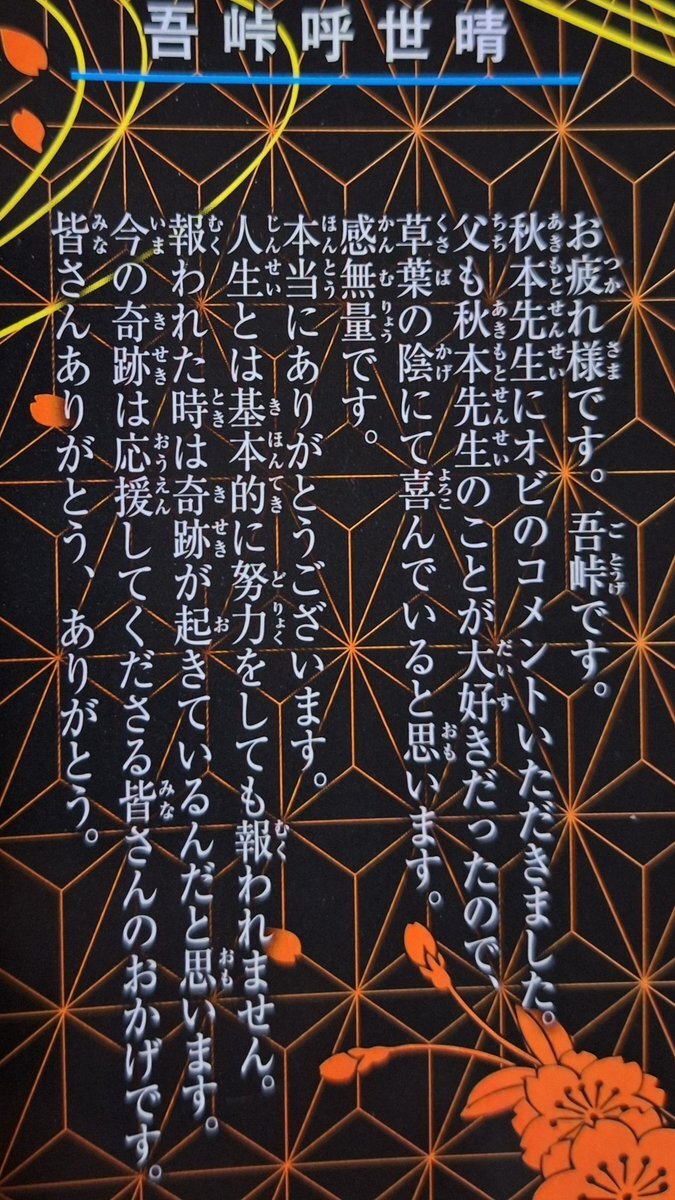 吾峠呼世晴
お疲れ様です。吾峠です。
秋本先生にオビのコメントいただきました。
父も秋本先生のことが大好きだったので、
草葉の陰にて喜んでいると思います。
感無量です。
本当にありがとうございます。
人生とは基本的に努力をしても報われません。
報われた時は奇跡が起きているんだと思います。
今の奇跡は応援してくださる皆さんのおかげです。
皆さんありがとう、ありがとう。